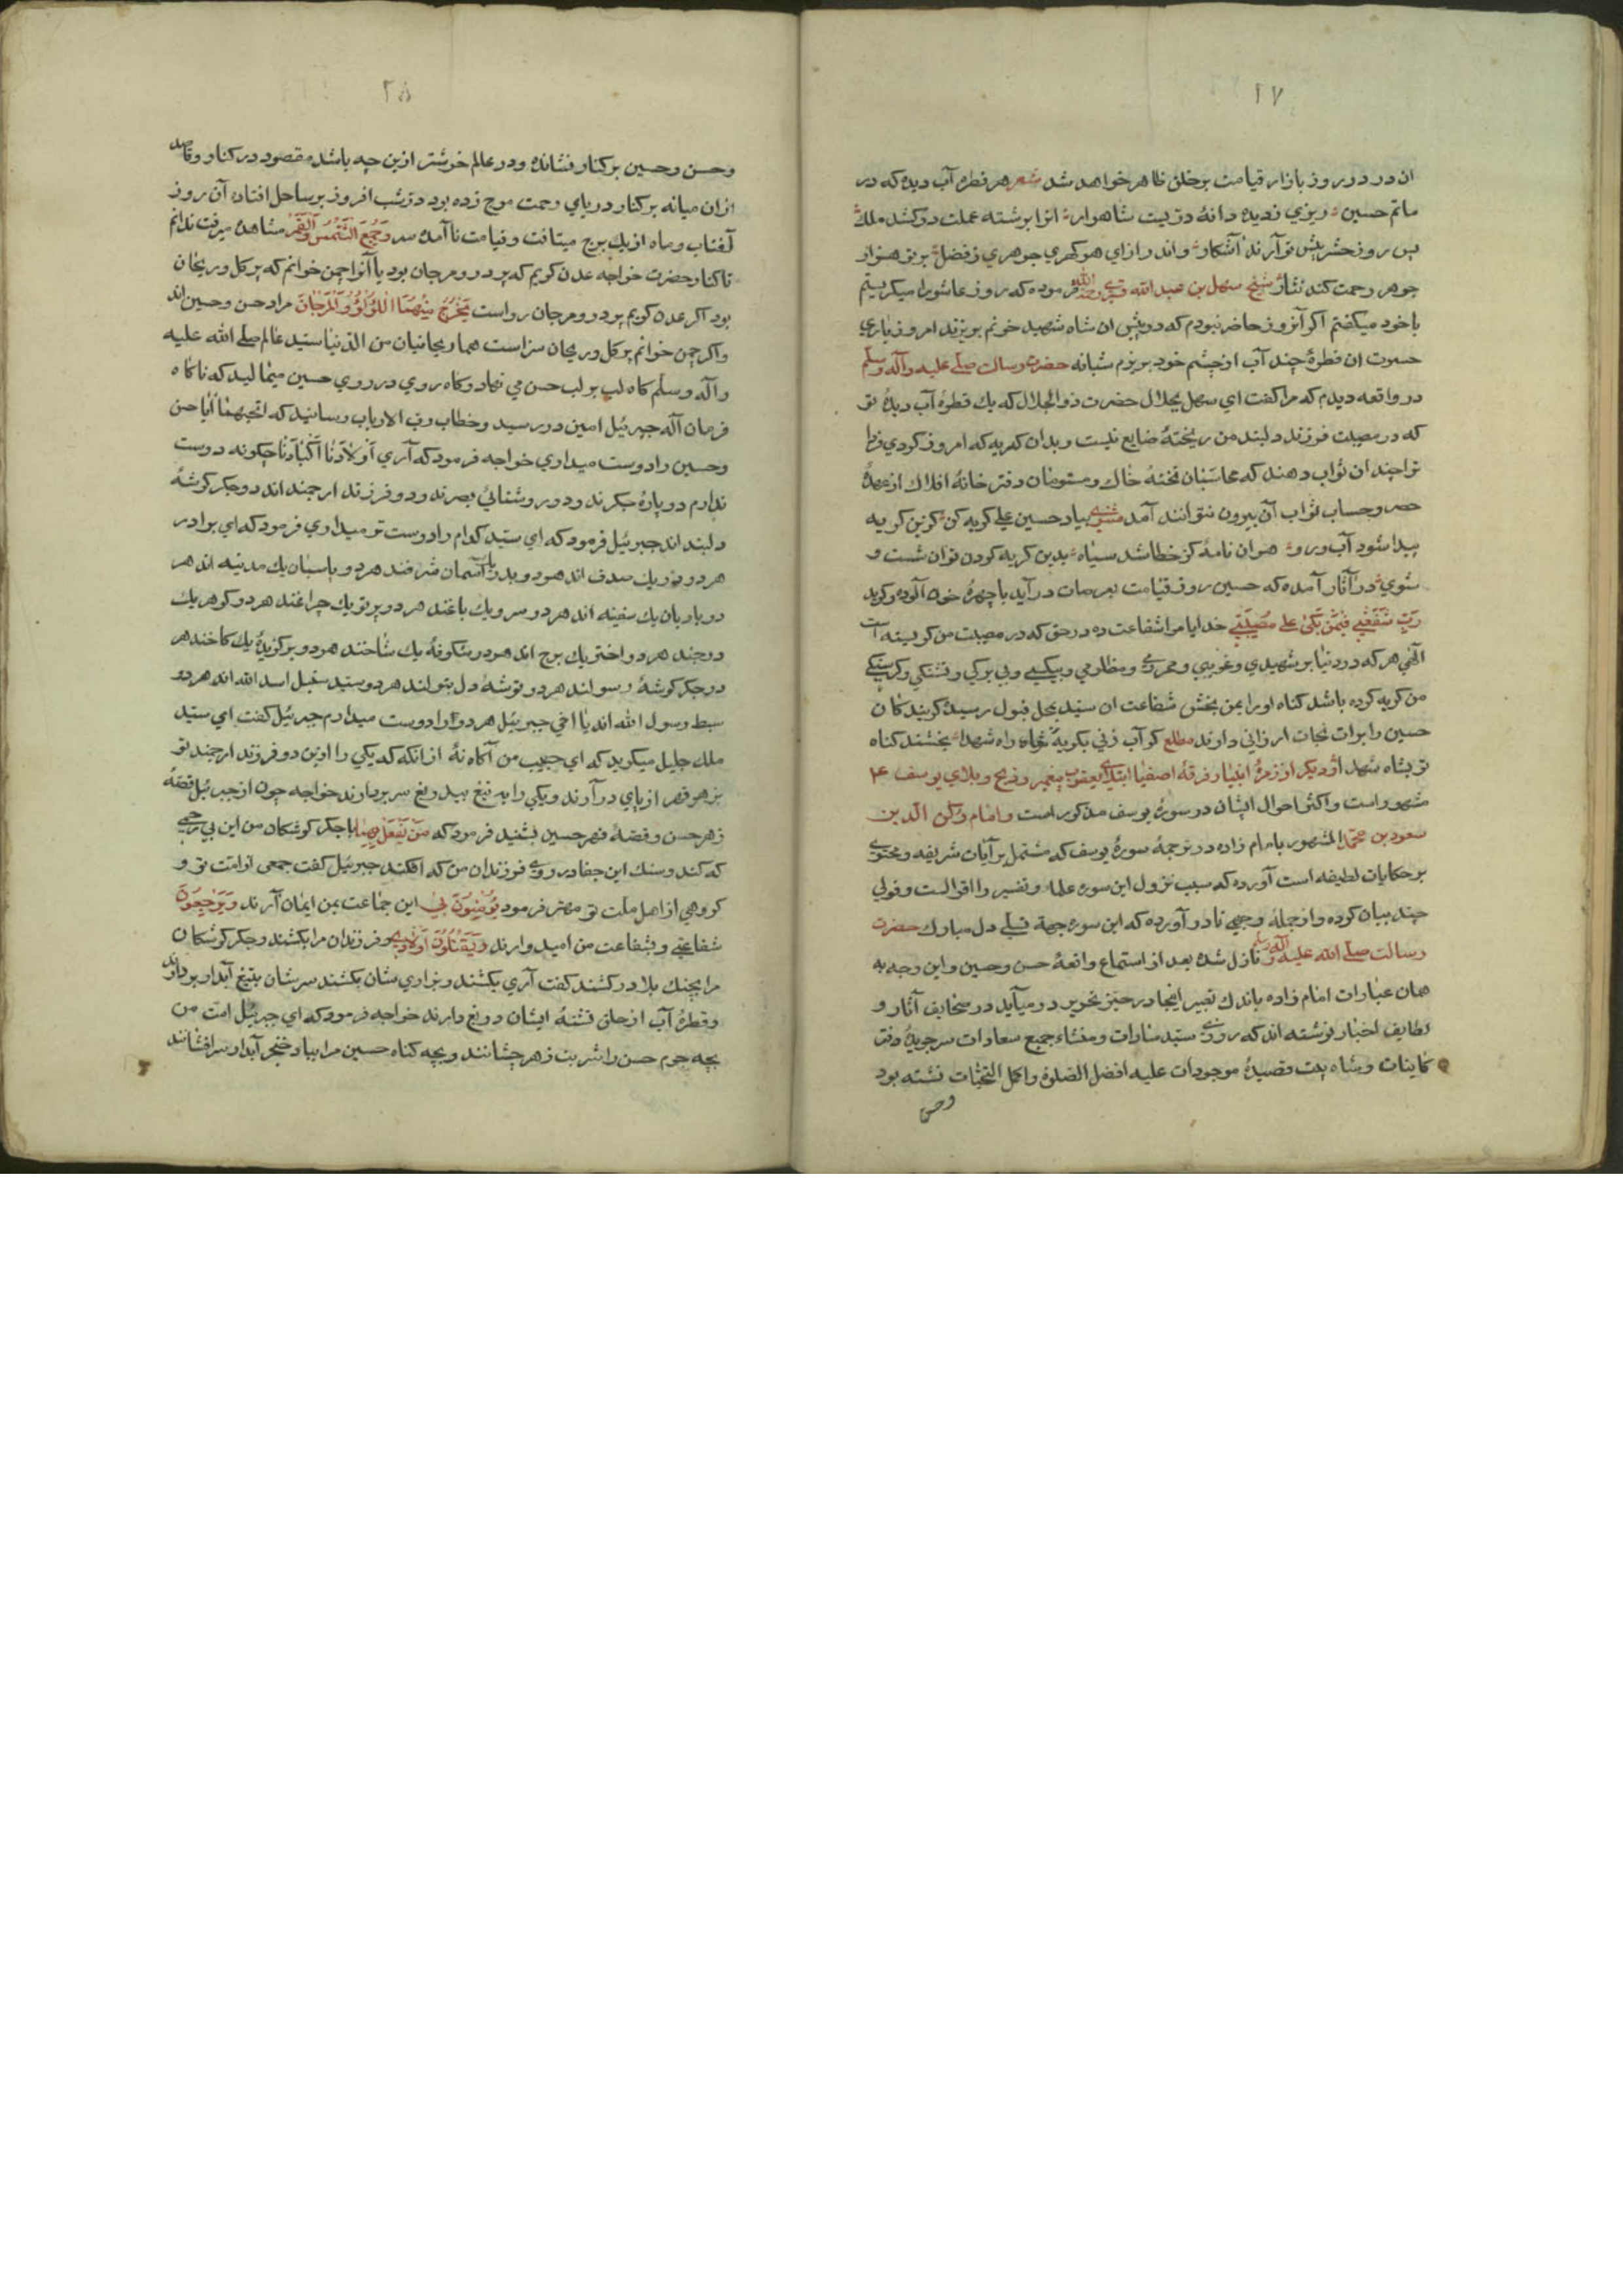 ۲۷
ان در در روز بازار قیامت بر خلق ظاهر خواهد شد شعر هر قطره آب دیده که در
ماتم حسین ریزی ز دیده دانهٔ در یست شاهوار انرا برشته عملت در کشد ملك
پس روز حشر پیش تو آرند آشکار واند رازای هر کهری جوهری ز فضل بر تو هزار
جوهر رحمت کند نثار شیخ سهل بن عبد الله فرموده که روز عاشورا میکریستم
باخود میکفتم اکر آنروز حاضر نبودم که در پیش ان شاه شهید خونم بریزند امروز باری
حسرت ان قطرهٔ چند آب از چشم خود بریزم شبانه حضرت رسالت صلی علیه وآله وسلم
در واقعه دیدم که مرا کفت ای سهل بجلال حضرت ذوالجلال که یك قطرهٔ آب دیدهٔ تو
که در مصیبت فرزند دلبند من ریختهٔ ضایع نیست و بدان کریه که امروز کردی فردا
ترا چندان ثواب دهند که محاسبان تختهٔ خاك و مستوفیان دفتر خانهٔ افلاك از عهدهٔ
حصر وحساب ثواب آن بیرون نتوانند آمد مثنوی بیاد حسین علی کریه کن کزین کریه
پیدا شود آب رو هر ان نامهٔ کز خطا شد سیاه بدین کریه کردن توان شست و
شوی در آثار آمده که حسین روز قیامت بعرصات درآید باچهرهٔ خون آلوده وکوید
رَبِّ شَفِّعْنِی فِیمَنْ بَکیٰ عَلیٰ مُصِیبَتِی خدایا مرا شفاعت ده در حق که در مصیبت من کریسته است
الٓهی هر که در دنیا بر شهیدی و غریبی و محرومی و مظلومی و بیکسی و بی برکی و تشنکی و کرسنکی
من کریه کرده باشد کناه او را بمن بخش شفاعت ان سید بمحل قبول رسیدهٔ کریندکان
حسین را برات نجات ارزانی دارند مطلع کر آب زنی بکریهٔ خواه راه شهدا بخشند کناه
تو بشاه شهدا ودیکر از زمرهٔ انبیا و فرقهٔ اصفیا ابتلای یعقوب پیغمبر و فریح وبلای یوسف ع
مشهور است واکثر احوال ایشان در سورهٔ یوسف مذکور است وامام رکن الدین
مسعود بن محمد المشهور بامام زاده در ترجمهٔ سورهٔ یوسف که مشتمل بر آیات شریفه و محتوی
بر حکایات لطیفه است آورده که سبب نزول این سوره علما و تفسیر را اقوالست وقولی
چند بیان کرده واز جملهٔ وجهی نادر آورده که این سوره جهة تسلی دل مبارك حضرت
رسالت صلی الله علیه وآله نازل شده بعد از استماع واقعهٔ حسن وحسین واین وجه به
همان عبارات امام زاده باندك تعبیر اینجا در حیز تحریر در میآید در صحایف آثار و
لطایف اخبار نوشته اند که روزی سید سادات ومنشاء جمیع سعادات سر جریدهٔ دفتر
کاینات وشاه بیت قصیدهٔ موجودات علیه افضل الصلوة واکمل التحیات نشسته بود
وحسن
۲۸
وحسن وحسین برکنار نشانده ودر عالم خوشتر ازین چه باشد مقصود در کنار وقاصد
ازان میانه برکنار دریای رحمت موج زده بود در شب افروز بر ساحل افتاده آن روز
آفتاب وماه از یك برج میتافت وقیامت ناآمده سر وَجُمِعَ الشَّمْسُ وَالْقَمَرُ مشاهده میرفت ندانم
تا کنار حضرت خواجه عدن کویم که پر در ومرجان بود یا آنرا چمن خوانم که پر کل وریحان
بود اکر عدن کویم پر در ومرجان رواست یَخْرُجُ مِنْهُمَا اللُّؤْلُؤُ وَالْمَرْجَانَ مراد حسن وحسین اند
واکر چمن خوانم پر کل وریحان سزاست هما ریحانیان من الدنیا سید عالم صلی الله علیه
وآله وسلم کاه لب بر لب حسن می نهاد وکاه روی در روی حسین میمالید که ناکاه
فرمان آله جبرئیل امین در رسید وخطاب رب الارباب رسانید که اتحبهما آیا حسن
وحسین را دوست میداری خواجه فرمود که آری اَوْلَادُنَا اَکْبَادُنَا چکونه دوست
ندارم دو پارهٔ جکرند ودو روشنائی بصرند ودو فرزند ارجمند اند دو جکر کوشهٔ
دلبند اند جبرئیل فرمود که ای سید کدام را دوست تر میداری فرمود که ای برادر
هر دو در یك صدف اند هر دو بدر یك آسمان شرفند هر دو پاسبان یك مدینه اند هر
دو بادبان یك سفینه اند هر دو سرو یك باغند هر دو پرتو یك چراغند هر دو کوهر یك
درجند هر دو اختر یك برج اند هر دو شکوفهٔ یك شاخند هر دو برکزیدهٔ یك کاخند هر
دو جکر کوشهٔ رسولند هر دو توشهٔ دل بتولند هر دو سید شبل اسد الله اند هر دو
سبط رسول الله اند یا اخی جبرئیل هر دو را دوست میدارم جبرئیل کفت ای سید
ملك جلیل میکوید که ای حبیب من آکاه نهٔ از انکه که یکی را ازین دو فرزند ارجمند تو
بزهر قهر از پای درآرند ویکی را به تیغ بیدریغ سر بردارند خواجه چون از جبرئیل قصهٔ
زهر حسن وقصهٔ قهر حسین بشنید فرمود که مَنْ یَفْعَلُ بِهِمَا با جکر کوشکان من این بی رحمی
که کند وسنك این جفا در روی فرزندان من که افکند جبرئیل کفت جمعی از امت تو و
کروهی از اهل ملت تو مهتر فرمود یُؤْمِنُونَ بِی این جماعت بمن ایمان آرند وَیَرْجُونَ
شَفَاعَتِی وبشفاعت من امیدوارند وَیَقْتُلُونَ اَوْلَادِی وفرزندان مرا بکشند وجکر کوشکان
مرا بچنك بلا در کشند کفت آری بکشند وبزاری شان بکشند سرشان بتیغ آبدار بردارند
وقطرهٔ آب از حلق تشنهٔ ایشان دریغ دارند خواجه فرمود که ای جبرئیل امت من
بچه جرم حسن را شربت زهر چشانند وبچه کناه حسین مرا بباد خنجر آبدار سر افشانند